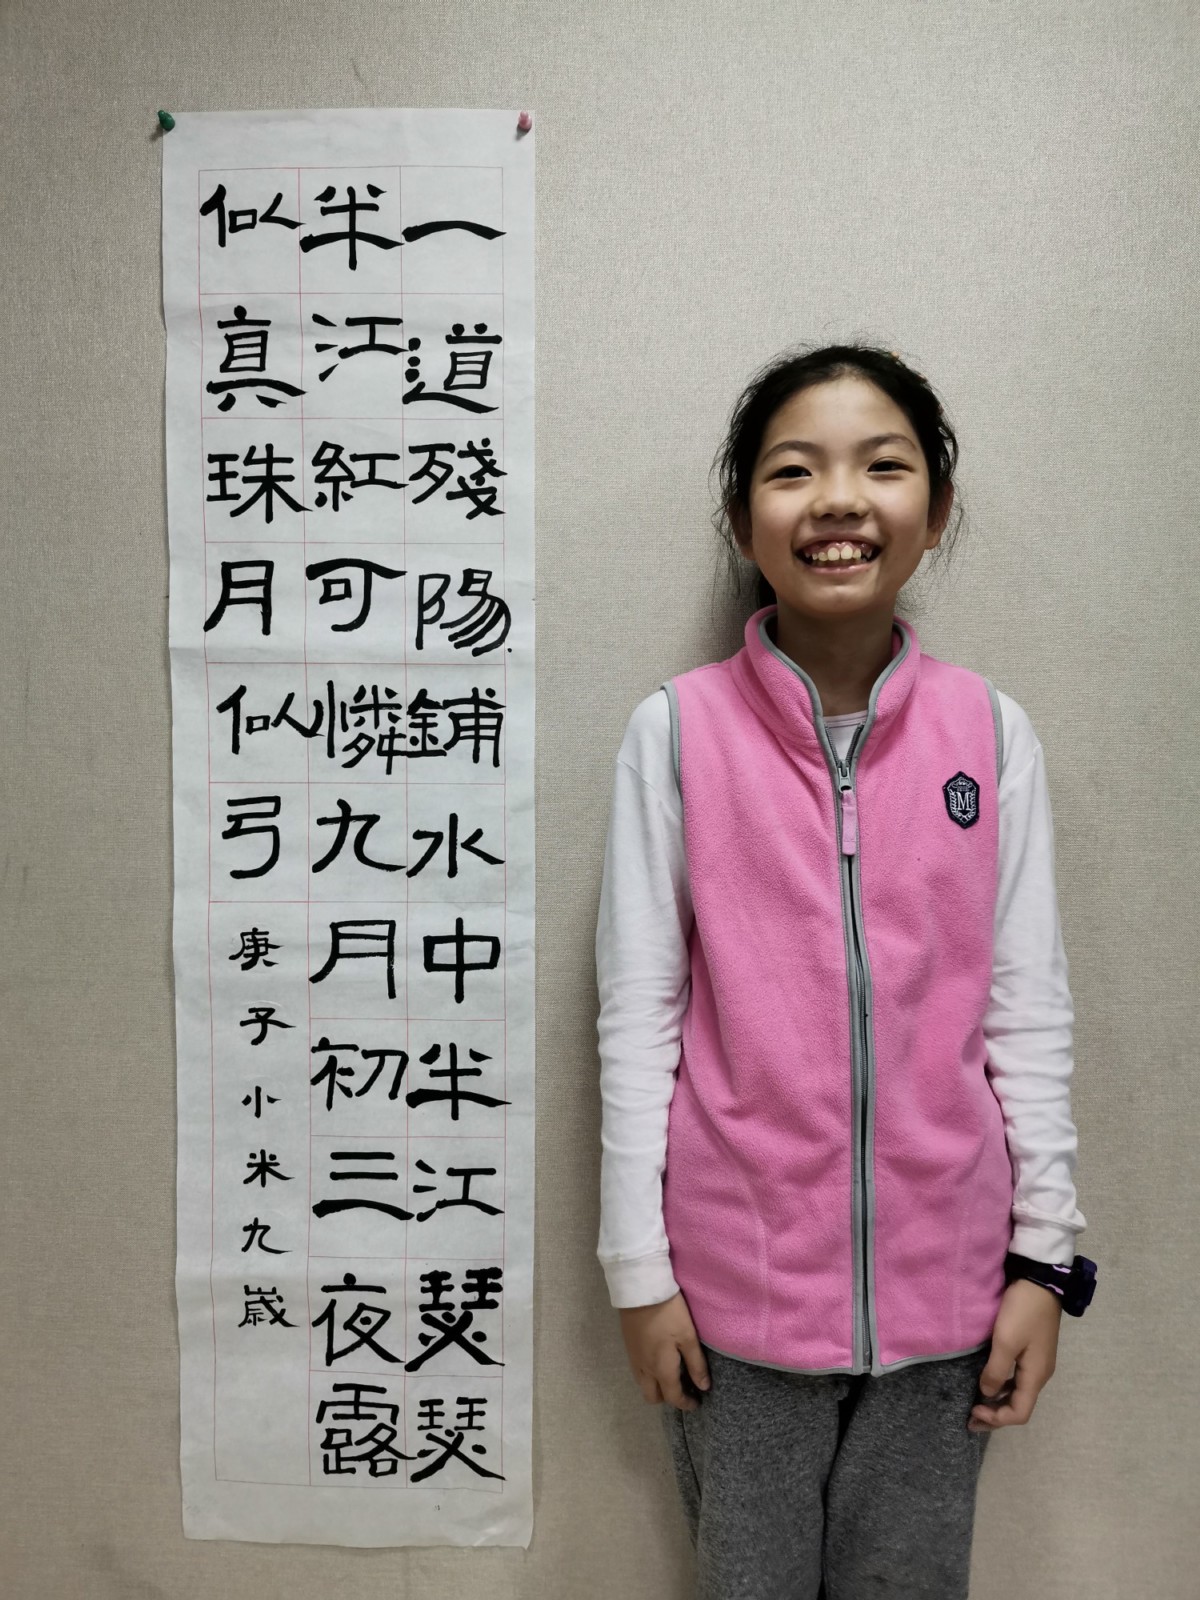 一道殘陽鋪水中半江瑟瑟
半江紅可憐九月初三夜露
似真珠月似弓
庚子小米九嵗
M